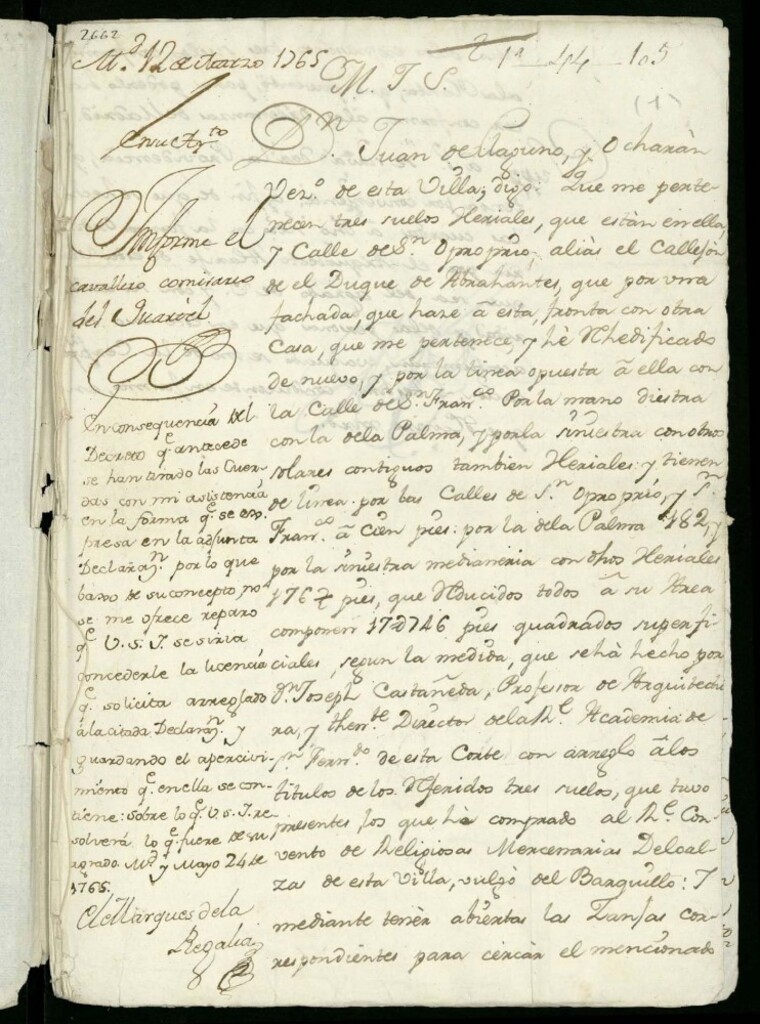 2662
M.d 12 de Marzo 1765
1a 44 105
(1)
M. I. S.
en su Ay.to
Informe el
cavallero comisario
del Quartel
En consequencia del
Decreto q.e antecede
se han tirado las Cuer-
das con mi asistencia
en la forma q.e se ex-
presa en la adjunta
Declaraz.n por lo que
baxo de su concepto no
se me ofrece reparo
q.e V. S. I. se sirva
concederle la licencia
q.e solicita arreglado
a la citada Declaraz.n y
guardando el apercivi-
miento q.e en ella se con-
tiene: sobre lo q.e V. S. I. re-
solverá lo q.e fuere de su
agrado. M.d y Mayo 24 de
1765.
El Marques de la
Regalia
D.n Juan de Clapuno, y Ocharàn
Vez.o de esta Villa, digo: Que me perte-
necen tres suelos Heriales, que estàn en ella,
y Calle de S.n Oproprio, alias el Callejòn
de el Duque de Abrahantes, que por una
fachada, que haze â esta, fronta con otra
Casa, que me pertenece, y hè Rhedificado
de nuevo, y por la linea opuesta â ella con
la Calle de S.n Fran.co Por la mano diestra
con la de la Palma, y por la siniestra con otros
solares contiguos tambien Heriales: y tienen
de linea por las Calles de S.n Oproprio, y S.n
Fran.co â cien pies: por la de la Palma 182, y
por la siniestra medianeria con dhos Heriales
176 pies, que Reducidos todos â su Area
componen 17746 pies quadrados superfi-
ciales, segun la medida, que se hà hecho por
D.n Joseph Castañeda, Profesor de Arquitectu-
ra, y Then.te Director de la R.l Academia de
S.n Fern.do de esta Corte con arreglo â los
titulos de los Referidos tres suelos, que tuvo
presentes los que hè comprado al R.l Con-
vento de Religiosas Mercenarias Descal-
zas de esta Villa, vulgo del Barquillo: Y
mediante tenèr abiertas las Zanjas cor-
respondientes para cercàr el mencionado